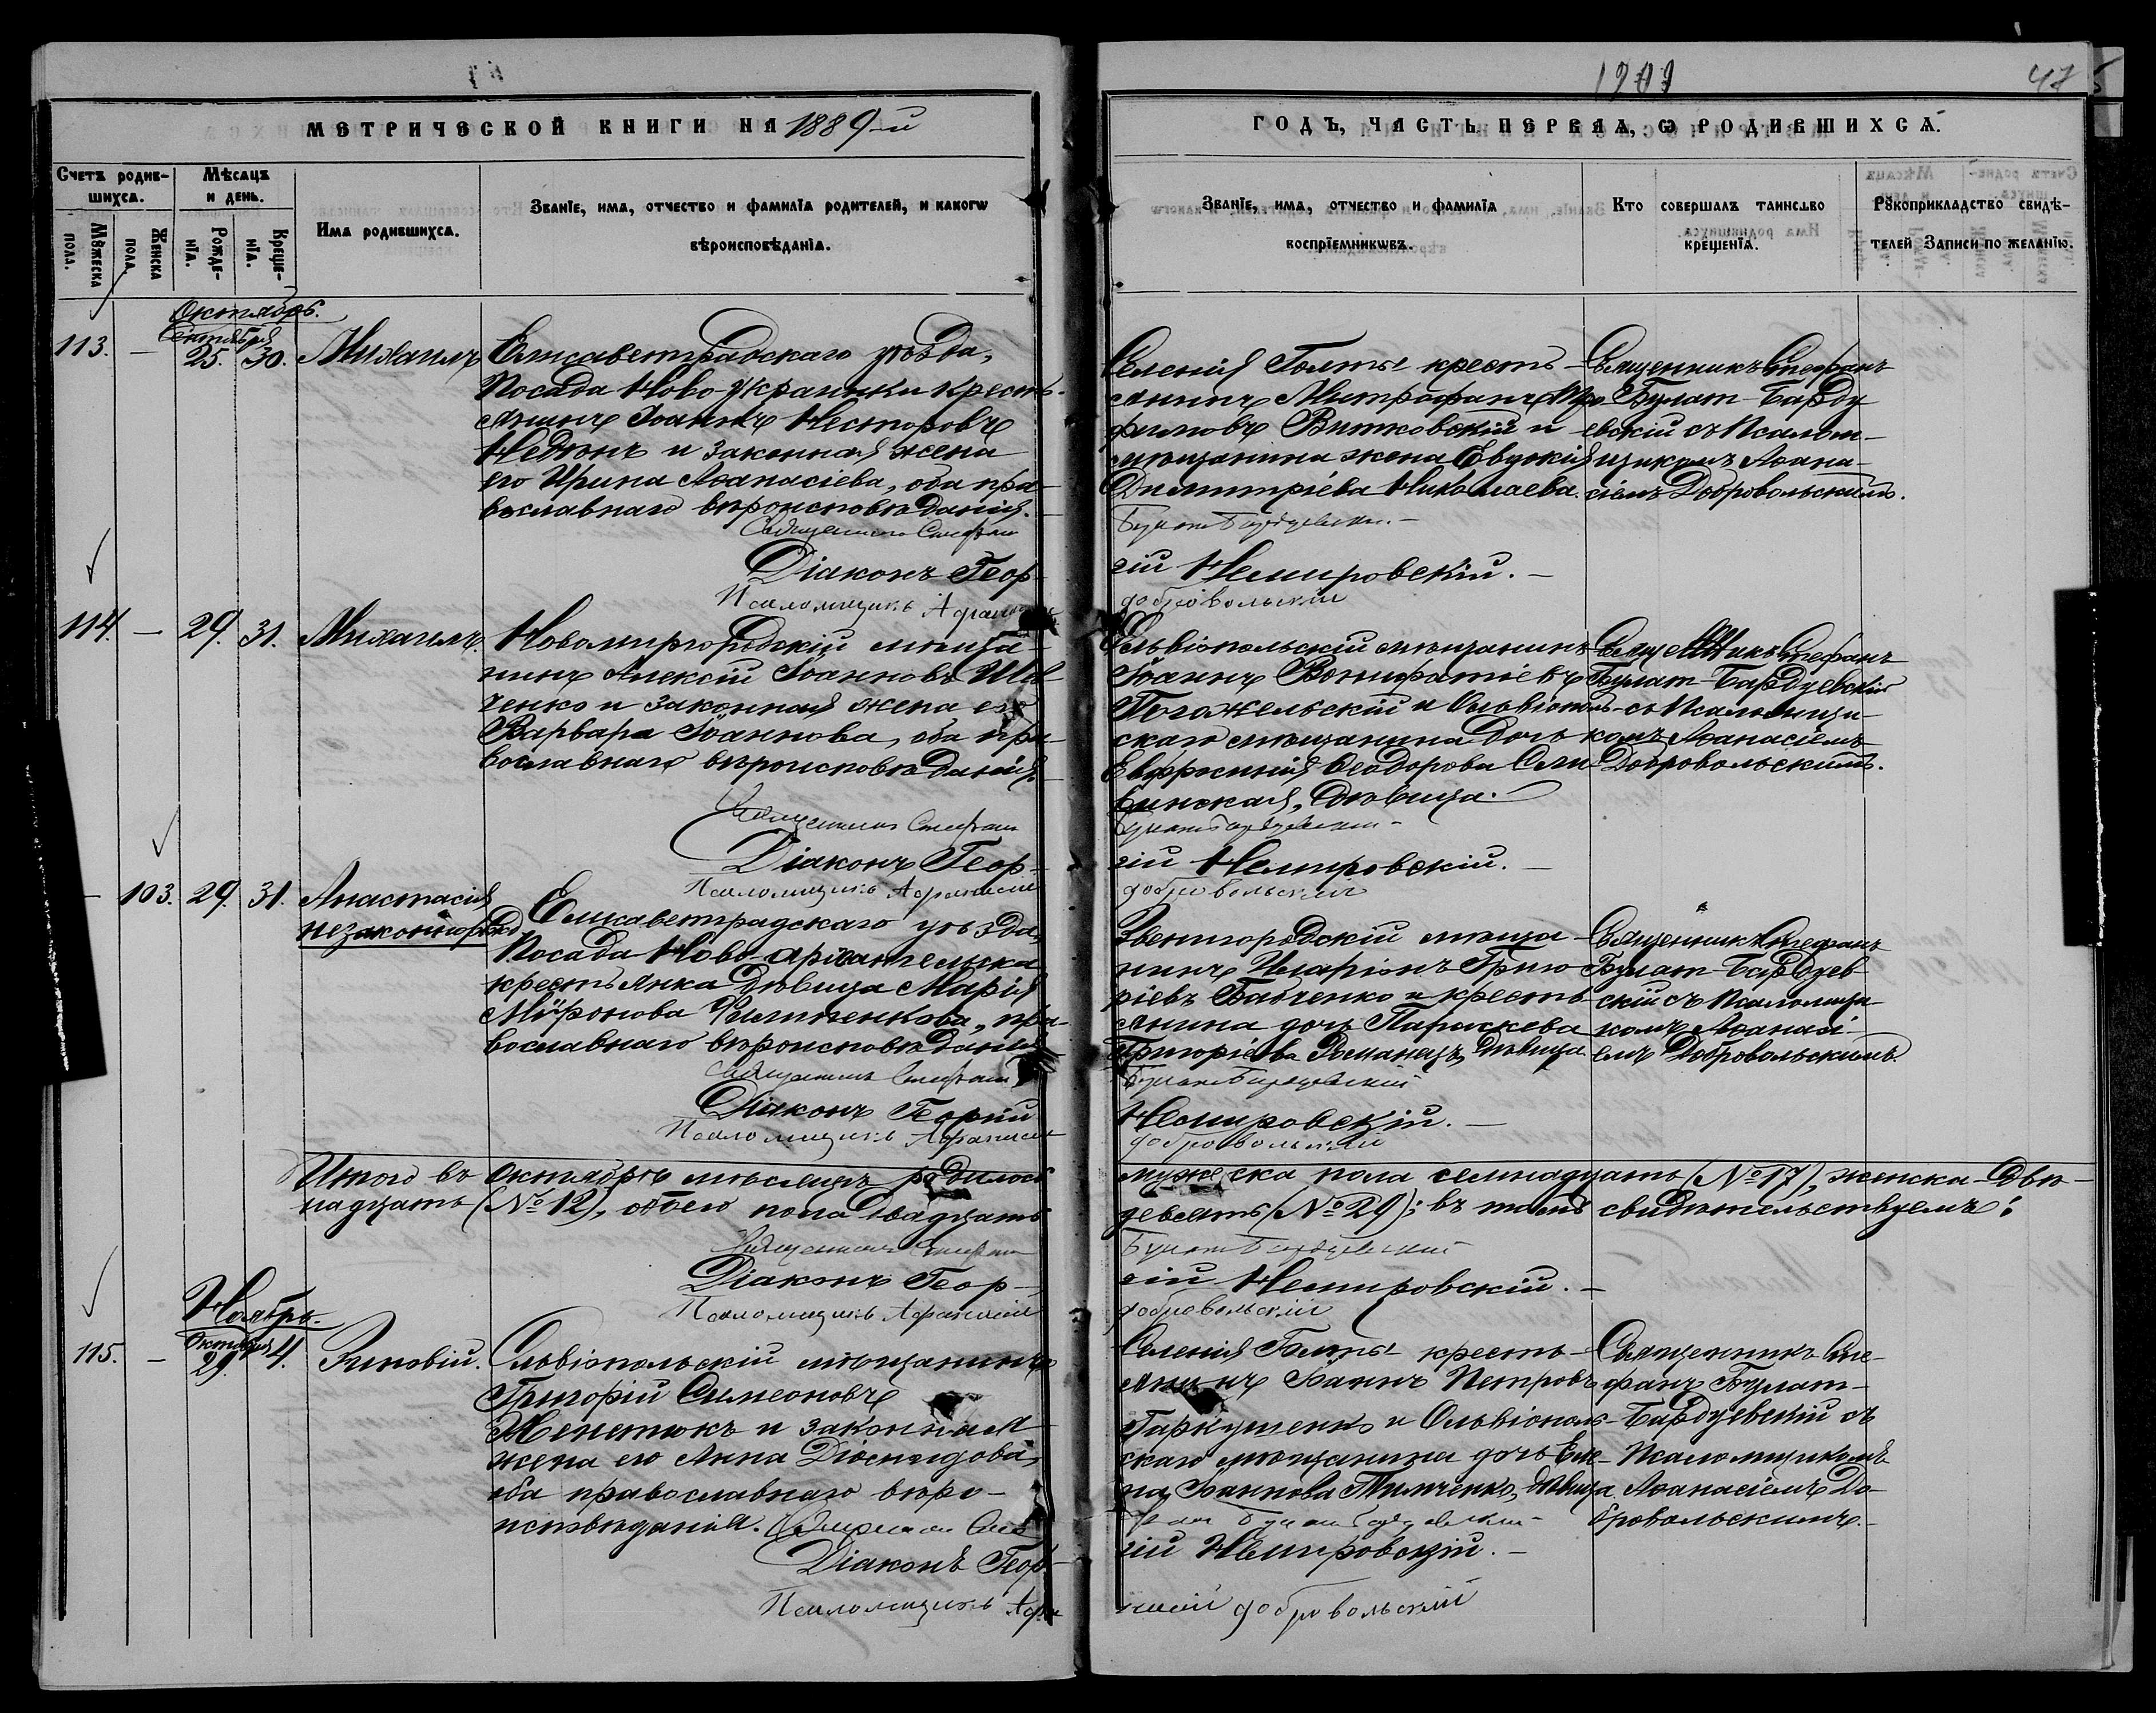 1889
475
МЕТРИЧЕСКОЙ КНИГИ НА 1889-й
ГОДЪ, ЧАСТЬ ПЕРВАѦ, Ѡ РОДИВШИХСѦ.
Счетъ родив-
шихсѧ.
Мѣсѧцъ
и день.
Мꙋжеска
пола.
Женска
пола.
Рожде-
нїѧ.
Креще-
нїѧ.
Имѧ родившихсѧ.
Званїе, имѧ, отчество и фамилїѧ родителей, и какогѡ
вѣроисповѣданїѧ.
Званїе, имѧ, отчество и фамилїѧ
воспрїемникѡвъ.
Кто совершалъ таинство
крещенїѧ.
Рꙋкоприкладство свидѣ-
телей записи по желанїю.
Октябрь.
Сентября
113. — 25. 30. Михаилъ
Елисаветградскаго уѣзда,
Посада Ново-Украинки кресть-
янинъ Іоаннъ Несторовъ
Недюнъ и законная жена
его Ирина Аѳанасіева, оба пра-
вославнаго вѣроисповѣданія.
Священникъ Стефанъ
Діаконъ Геор-
Псаломщикъ Афанасій
Селенія Голты кресть-
янинъ Митрофанъ Тро-
фимовъ Витковскій и
мѣщанина жена Евдокія
Димитріева Николаева.
Булатъ-Бардуевскій
гій Немировскій.
Добровольскій
Священникъ Стефанъ
Булат-Барду
евскій съ Псалом-
щикомъ Аѳана-
сіемъ Добровольскимъ.
114. — 29. 31. Михаилъ.
Новомиргородскій мѣща-
нинъ Алексій Іоанновъ Шев
ченко и законная жена его
Варвара Іоаннова, оба пра-
вославнаго вѣроисповѣданія
Священникъ Стефанъ
Діаконъ Геор-
Псаломщикъ Афанасій
Ольвіопольскій мѣщанинъ
Іоаннъ Вонифатіевъ
Погожельскій и Ольвіополь-
скаго мѣщанина дочь
Евфросинія Ѳеодорова Сли-
винская, дѣвица.
Булатъ-Бардуевскій
гій Немировскій.
Добровольскій
Священникъ Стефанъ
Булат-Бардуевскій
съ Псаломщи-
комъ Аѳанасіемъ
Добровольскимъ.
— 103. 29. 31. Анастасія
незаконнорожд.
Елисаветградскаго уѣзда,
Посада Ново-Архангельска
крестьянка дѣвица Марія
Мѵронова Филипенкова, пра-
вославнаго вѣроисповѣданія
Священникъ Стефанъ
Діаконъ Георгій
Псаломщикъ Афанасій
Звенигородскій мѣща-
нинъ Иларіонъ Григо
ріевъ Бабченко и кресть-
янина дочь Параскева
Григоріева Романазъ, дѣвица.
Булатъ-Бардуевскій
Немировскій.
Добровольскій
Священникъ Стефанъ
Булат-Бардуев-
скій съ Псаломщи-
комъ Аѳанасі-
емъ Добровольскимъ.
Итого въ Октябрѣ мѣсяцѣ родилось мужеска пола семнадцать (№ 17), женска - двѣ-
надцать (№ 12), обоего пола двадцать девять (№ 29); въ томъ свидѣтельствуемъ:
Священникъ Стефанъ Булатъ-Бардуевскій
Діаконъ Геор- гій Немировскій.
Псаломщикъ Афанасій Добровольскій
Ноябрь.
Октября
115. — 29. 4. Зиновій.
Ольвіопольскій мѣщанинъ
Григорій Симеоновъ
Женетюкъ и законная
жена его Анна Діомидова,
оба православнаго вѣро-
исповѣданія. Священникъ Сте
Діаконъ Геор-
Псаломщикъ Афа
Селенія Голты кресть-
янинъ Іоаннъ Петровъ
Гаркушенко и Ольвіополь-
скаго мѣщанина дочь Еле-
на Іоаннова Тимченко, дѣвица
фанъ Булатъ-Бардуевскій
гій Немировскій.
насій Добровольскій
Священникъ Сте-
фанъ Булат-
Бардуевскій съ
Псаломщикомъ
Аѳанасіемъ До-
бровольскимъ.